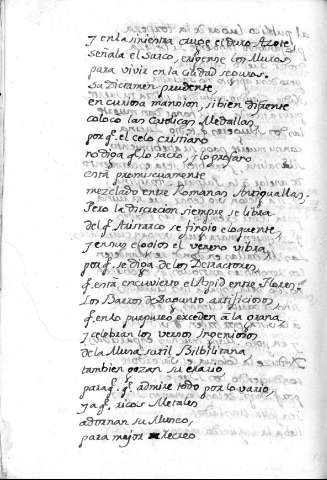 y en la siniestra cruge el duro Azote,
señala el Sarco, en los Muros
para vivir en la Ciudad seguros.
Su dictamen prudente
en curiosa mansion, si bien diferente
coloco las Medallas
porq.e el celo cristiano
no diga q.e lo sacro, y lo profano
està promiscuamente
mezclado entre Romanas Antiguallas.
Pero la discrecion siempre se libra
del q.e Aristarco se fingio eloquente,
y en sus elogios el veneno vibra
porq.e se diga de los Detractores,
q.e està encuvierto el Aspid entre Flores.
Los Barros de Sagunto artificiosos,
q.e en lo purpureo exceden à la grana
y celebran los versos Ingeniosos
de la Musa sutil Bilbilitana
tambien gozan su erario,
paraq.e q.e admire todo por lo vario,
y aq.e ricos Metales
adornan su Museo,
para mejor recreo